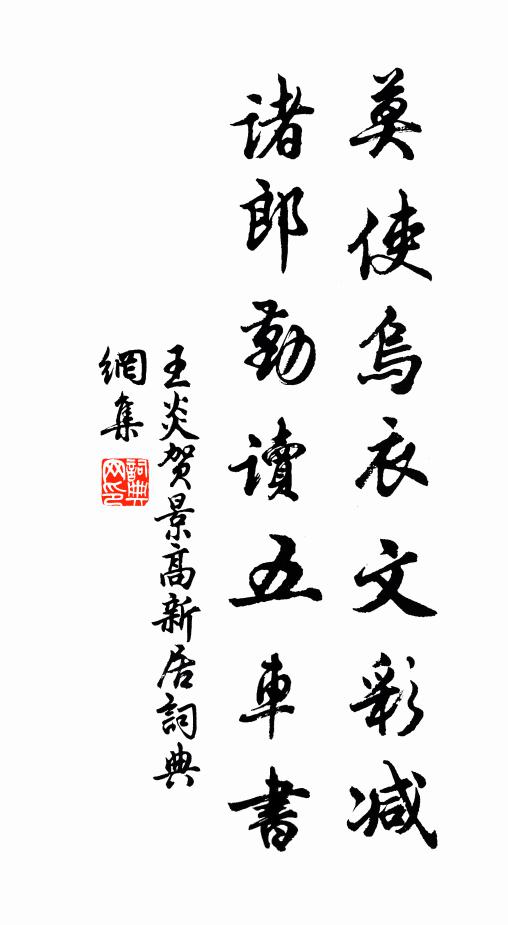 莫使烏衣文彩减
诸郎勤讀五車書
王炎贺景高新居詞典
網集
詞典
网印